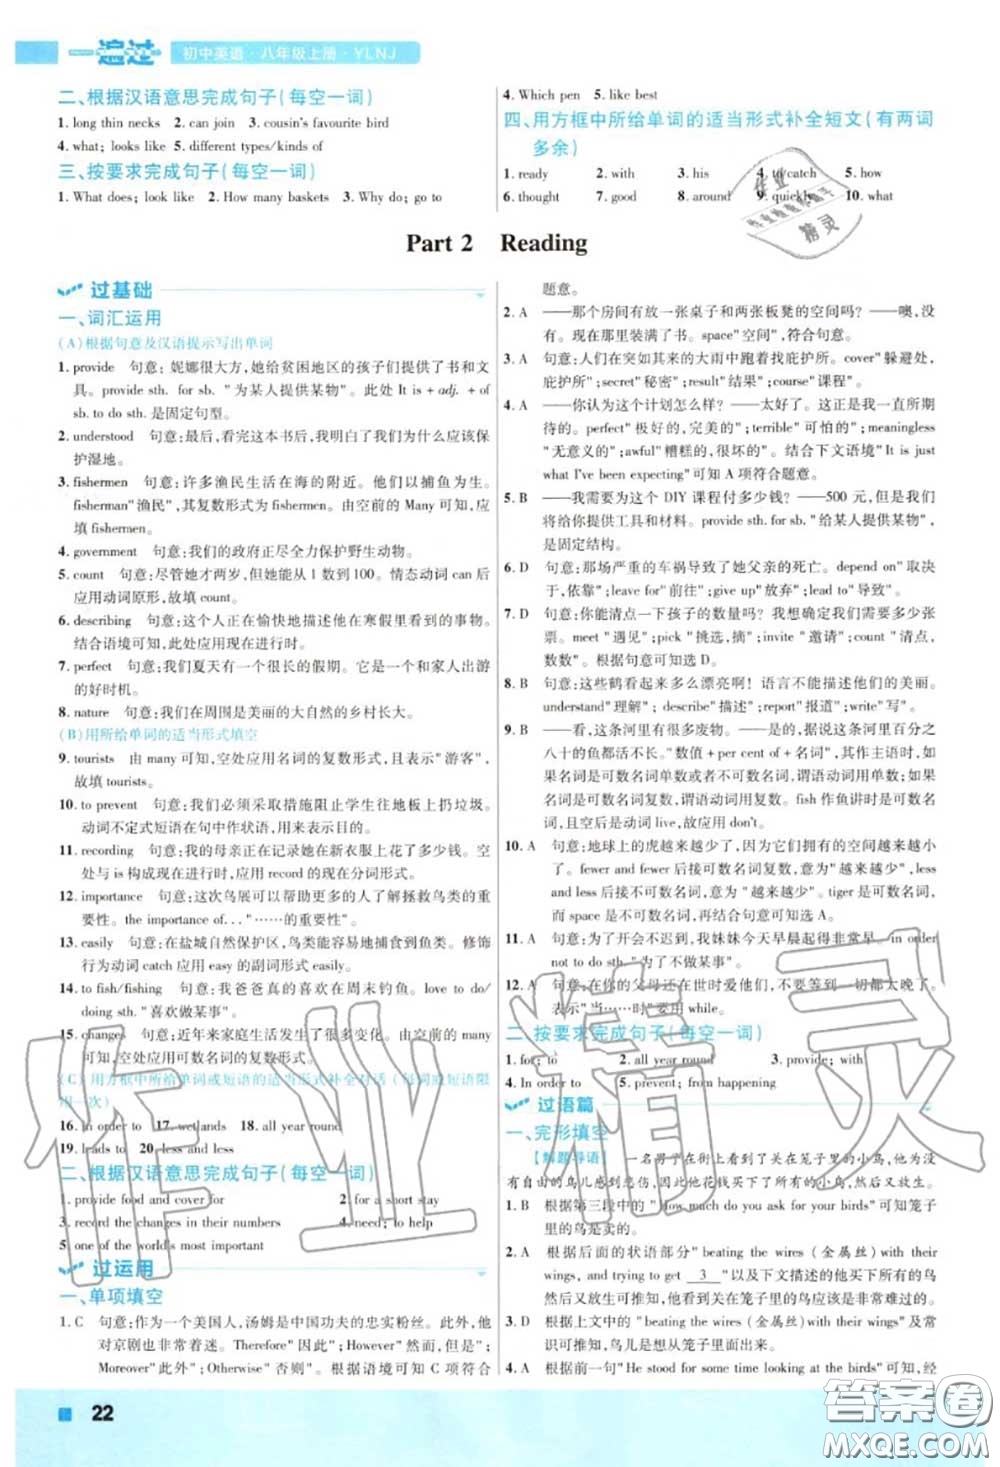 一遍过 初中英语·八年级上册·YLNJ
二、根据汉语意思完成句子(每空一词)
1. long thin necks 2. can join 3. cousin's favourite bird
4. what; looks like 5. different types/kinds of
三、按要求完成句子(每空一词)
1. What does; look like 2. How many baskets 3. Why do; go to
4. Which pen 5. like best
四、用方框中所给单词的适当形式补全短文(有两词
多余)
1. ready 2. with 3. his 4. to catch 5. how
6. thought 7. good 8. around 9. quickly 10. what
Part 2 Reading
过基础
一、词汇运用
(A)根据句意及汉语提示写出单词
1. provide 句意:妮娜很大方,她给贫困地区的孩子们提供了书和文
具。provide sth. for sb. "为某人提供某物"。此处 It is + adj. + of
sb. to do sth. 是固定句型。
2. understood 句意:最后,看完这本书后,我明白了我们为什么应该保
护湿地。
3. fishermen 句意:许多渔民生活在海的附近。他们以捕鱼为生。
fisherman"渔民",其复数形式为 fishermen。由空前的 Many 可知,应
填 fishermen。
4. government 句意:我们的政府正尽全力保护野生动物。
5. count 句意:尽管她才两岁,但她能从 1 数到 100。情态动词 can 后
应用动词原形,故填 count。
6. describing 句意:这个人正在愉快地描述他在寒假里看到的事物。
结合语境可知,此处应用现在进行时。
7. perfect 句意:我们夏天有一个很长的假期。它是一个和家人出游
的好时机。
8. nature 句意:我们在周围是美丽的大自然的乡村长大。
(B)用所给单词的适当形式填空
9. tourists 由 many 可知,空处应用名词的复数形式,且表示"游客",
故填 tourists。
10. to prevent 句意:我们必须采取措施阻止学生往地板上扔垃圾。
动词不定式短语在句中作状语,用来表示目的。
11. recording 句意:我的母亲正在记录她在新衣服上花了多少钱。空
处与 is 构成现在进行时,应用 record 的现在分词形式。
12. importance 句意:这次鸟展可以帮助更多的人了解拯救鸟类的重
要性。the importance of... "……的重要性"。
13. easily 句意:在盐城自然保护区,鸟类能容易地捕食到鱼类。修饰
行为动词 catch 应用 easy 的副词形式 easily。
14. to fish/fishing 句意:我爸爸真的喜欢在周末钓鱼。love to do/
doing sth. "喜欢做某事"。
15. changes 句意:近年来家庭生活发生了很多变化。由空前的 many
可知,空处应用可数名词的复数形式。
(C)用方框中所给单词或短语的适当形式补全对话(每词或短语限
用一次)
16. In order to 17. wetlands 18. all year round
19. leads to 20. less and less
二、根据汉语意思完成句子(每空一词)
1. provide food and cover for 2. for a short stay
3. record the changes in their numbers 4. need; to help
5. one of the world's most important
过运用
一、单项填空
1. C 句意:作为一个美国人,汤姆是中国功夫的忠实粉丝。此外,他
对京剧也非常着迷。Therefore "因此";However"然而,但是";
Moreover"此外";Otherwise "否则"。根据语境可知 C 项符合
题意。
2. A ——那个房间有放一张桌子和两张板凳的空间吗? ——噢,没
有。现在那里装满了书。space"空间",符合句意。
3. A 句意:人们在突如其来的大雨中跑着找庇护所。cover"躲避处,
庇护所";secret"秘密";result"结果";course"课程"。
4. A ——你认为这个计划怎么样? ——太好了。这正是我一直所期
待的。perfect"极好的,完美的";terrible"可怕的";meaningless
"无意义的";awful"糟糕的,很坏的"。结合下文语境"It is just
what I've been expecting"可知 A 项符合题意。
5. B ——我需要为这个 DIY 课程付多少钱? ——500 元,但是我们
将给你提供工具和材料。provide sth. for sb. "给某人提供某物",
是固定结构。
6. D 句意:那场严重的车祸导致了她父亲的死亡。depend on"取决
于,依靠";leave for"前往";give up"放弃";lead to"导致"。
7. D 句意:你能清点一下孩子的数量吗? 我想确定我们需要多少张
票。meet "遇见";pick "挑选,摘";invite "邀请";count "清点,
数数"。根据句意可知选 D。
8. B 句意:这些鹤看起来多么漂亮啊! 语言不能描述他们的美丽。
understand"理解"; describe"描述";report"报道";write"写"。
9. B ——看,这条河里有很多废物。——是的,据说这条河里百分之
八十的鱼都活不长。"数值 + per cent of + 名词",其作主语时,如
果名词是可数名词单数或者不可数名词,谓语动词用单数;如果
名词是可数名词复数,谓语动词用复数。fish 作鱼讲时是可数名
词,且空后是动词 live,故应用 don't。
10. A 句意:地球上的虎越来越少了,因为它们拥有的空间越来越小
了。fewer and fewer 后接可数名词复数,意为"越来越少",less
and less 后接不可数名词,意为"越来越少"。tiger 是可数名词,
而 space 是不可数名词,再结合句意可知选 A。
11. A 句意:为了开会不迟到,我妹妹今天早晨起得非常早。in order
not to do sth. "为了不做某事"。
12. A 句意:在你的父母还在世时爱他们,不要等到一切都太晚了。
表示"当……时"要用 while。
二、按要求完成句子(每空一词)
1. for; to 2. all year round 3. provide; with
4. In order to 5. prevent; from happening
过语篇
一、完形填空
【解题导语】 一名男子在街上看到了关在笼子里的小鸟,他为没
有自由的鸟儿感到悲伤,因此他花钱买下了所有的鸟,然后又放生。
1. B 根据第三段中的"How much do you ask for your birds"可知笼子
里的鸟是卖的。
2. A 根据后面的状语部分"beating the wires (金属丝) with their
wings, and trying to get 3 "以及下文描述的他买下所有的鸟
然后放生可知,他看到关在笼子里的鸟应该是非常悲伤的。
3. D 根据上文中的"beating the wires (金属丝) with their wings"及
常识可推知,鸟儿是想从笼子里面出来。
4. A 根据前一句"He stood for some time looking at the birds"可知,经
22
作业精灵
作业精灵
答案圈
MXQE.COM